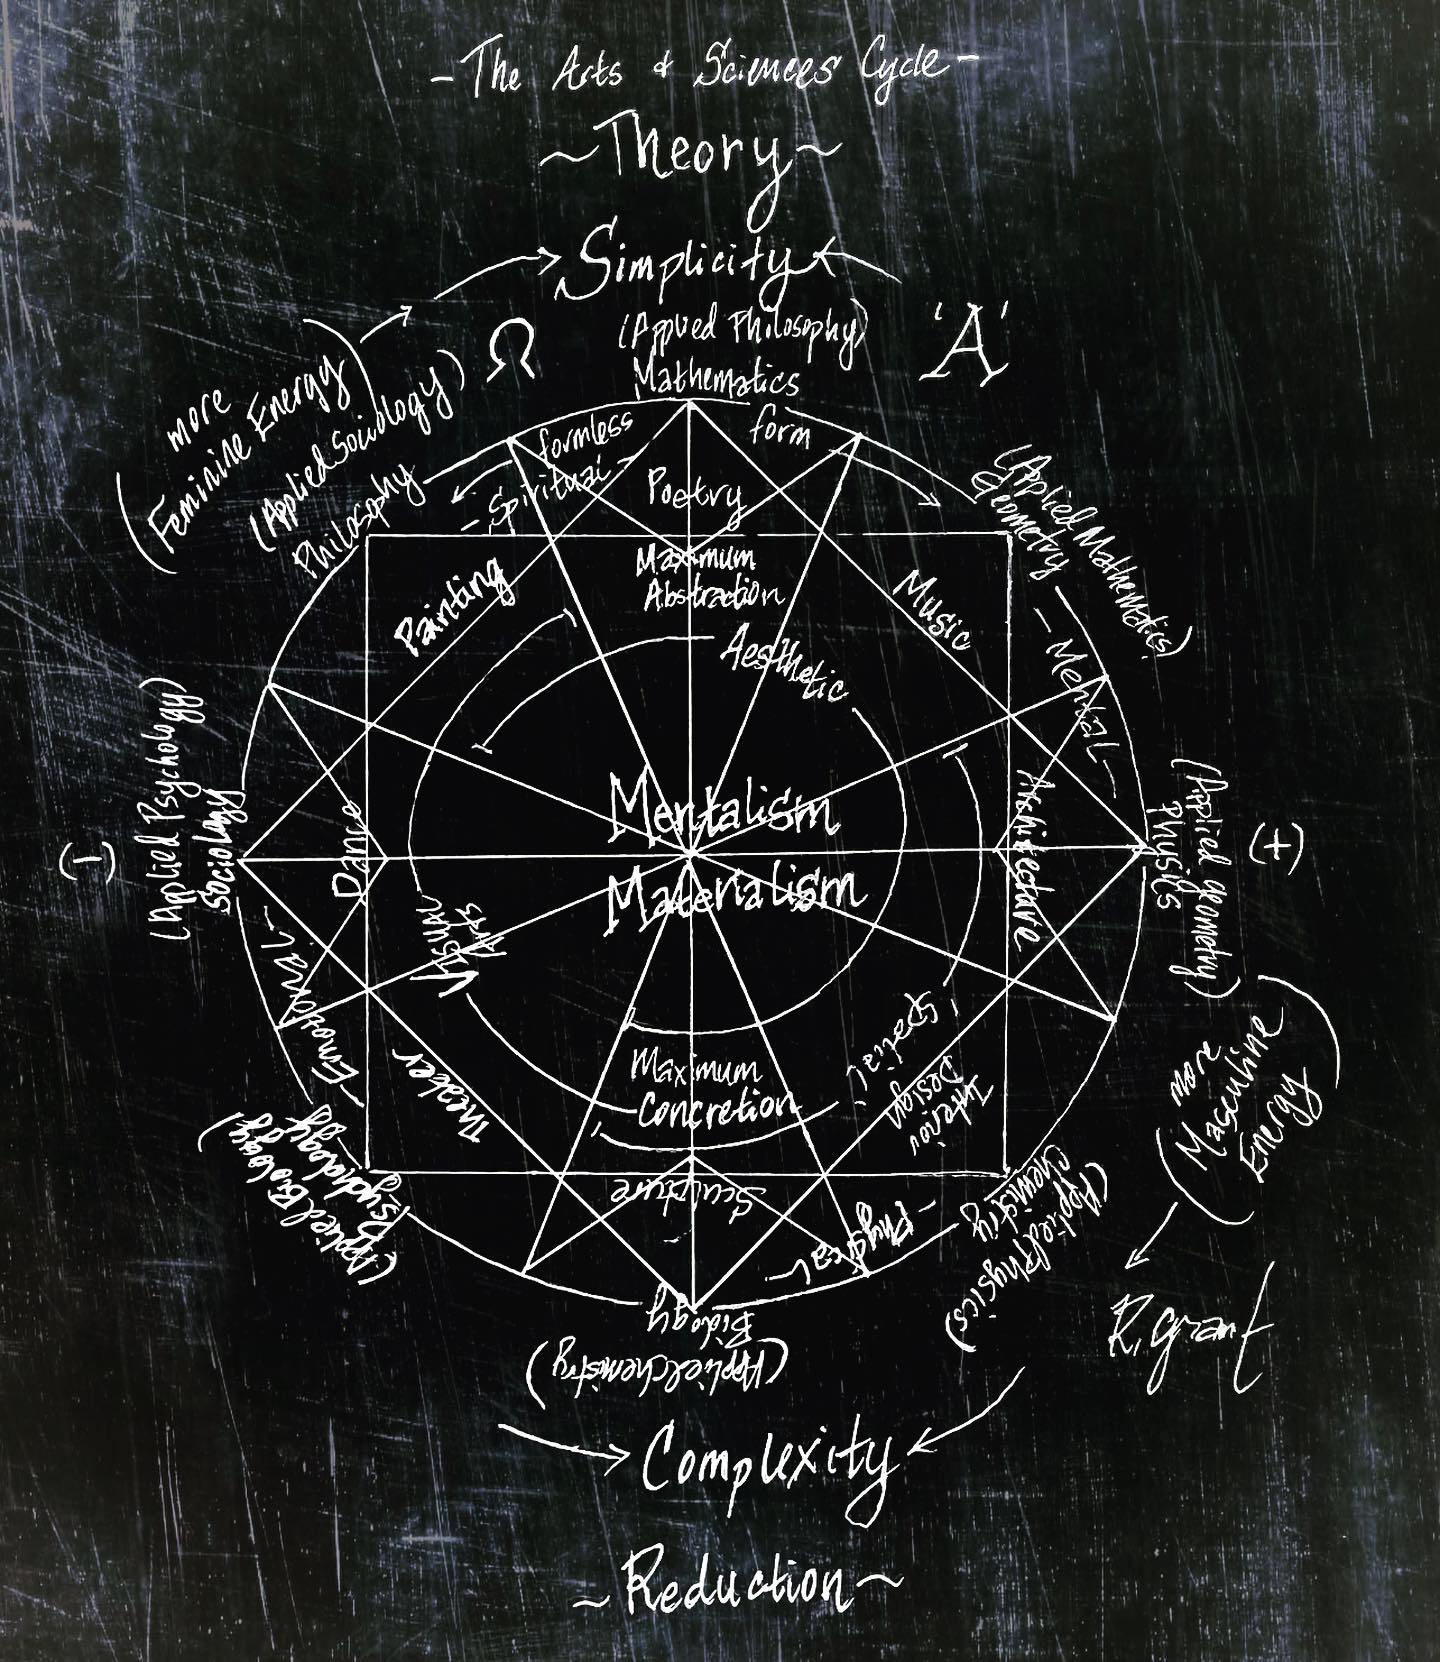 - The Arts & Sciences Cycle -
~ Theory ~
Simplicity
(Applied Philosophy)
Mathematics
Ω
'A'
more
(Feminine Energy)
(Applied Sociology)
Philosophy
formless
form
- Spiritual -
Poetry
Maximum
Abstraction
Painting
Music
(Applied Mathematics)
Geometry
- Mental -
Aesthetic
(Applied Psychology)
Sociology
(-)
Dance
Mentalism
Materialism
Architecture
(Applied geometry)
Physics
(+)
Visual
Arts
- Emotional -
Theater
Maximum
Concretion
Spatial
Interior
Design
more
(Masculine
Energy)
(Applied Biology)
Psychology
Sculpture
- Physical -
(Applied Physics)
Chemistry
Biology
(Applied chemistry)
R. Grant
Complexity
~ Reduction ~